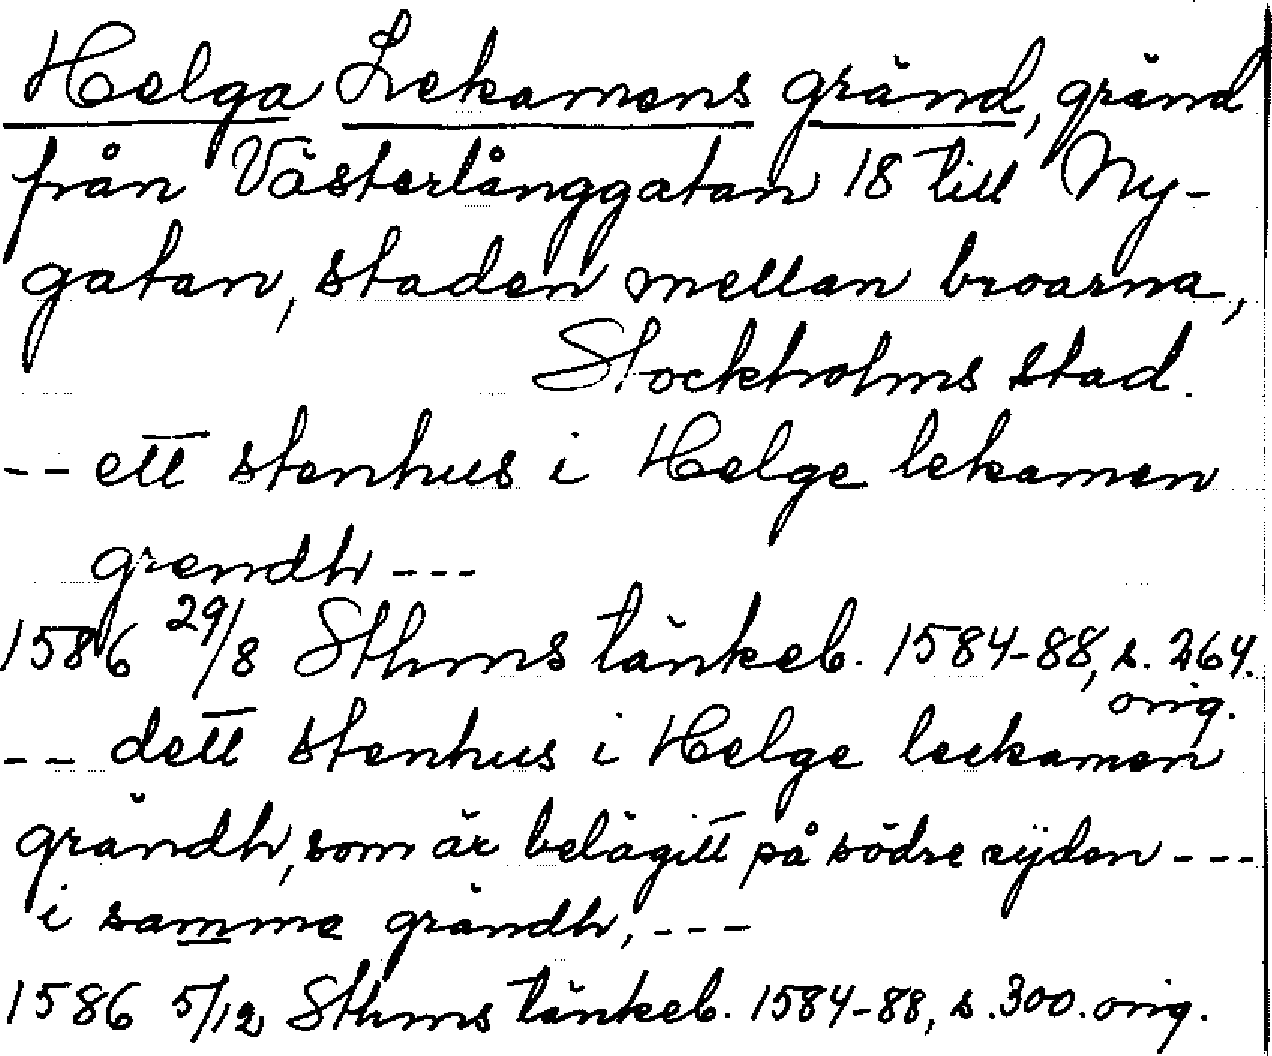 Helga Lekamens gränd, gränd
från Västerlånggatan 18 till Ny-
gatan, staden mellan broarna,
Stockholms stad.
-- ett stenhus i Helge lekamen
grendh ---
1586 29/8 Sthms tänkeb. 1584-88, s. 264.
orig.
-- dett stenhus i Helge leekamen
grändh, som är belägitt på södre sijden ---
i samme grändh, ---
1586 5/12 Sthms tänkeb. 1584-88, s. 300. orig.